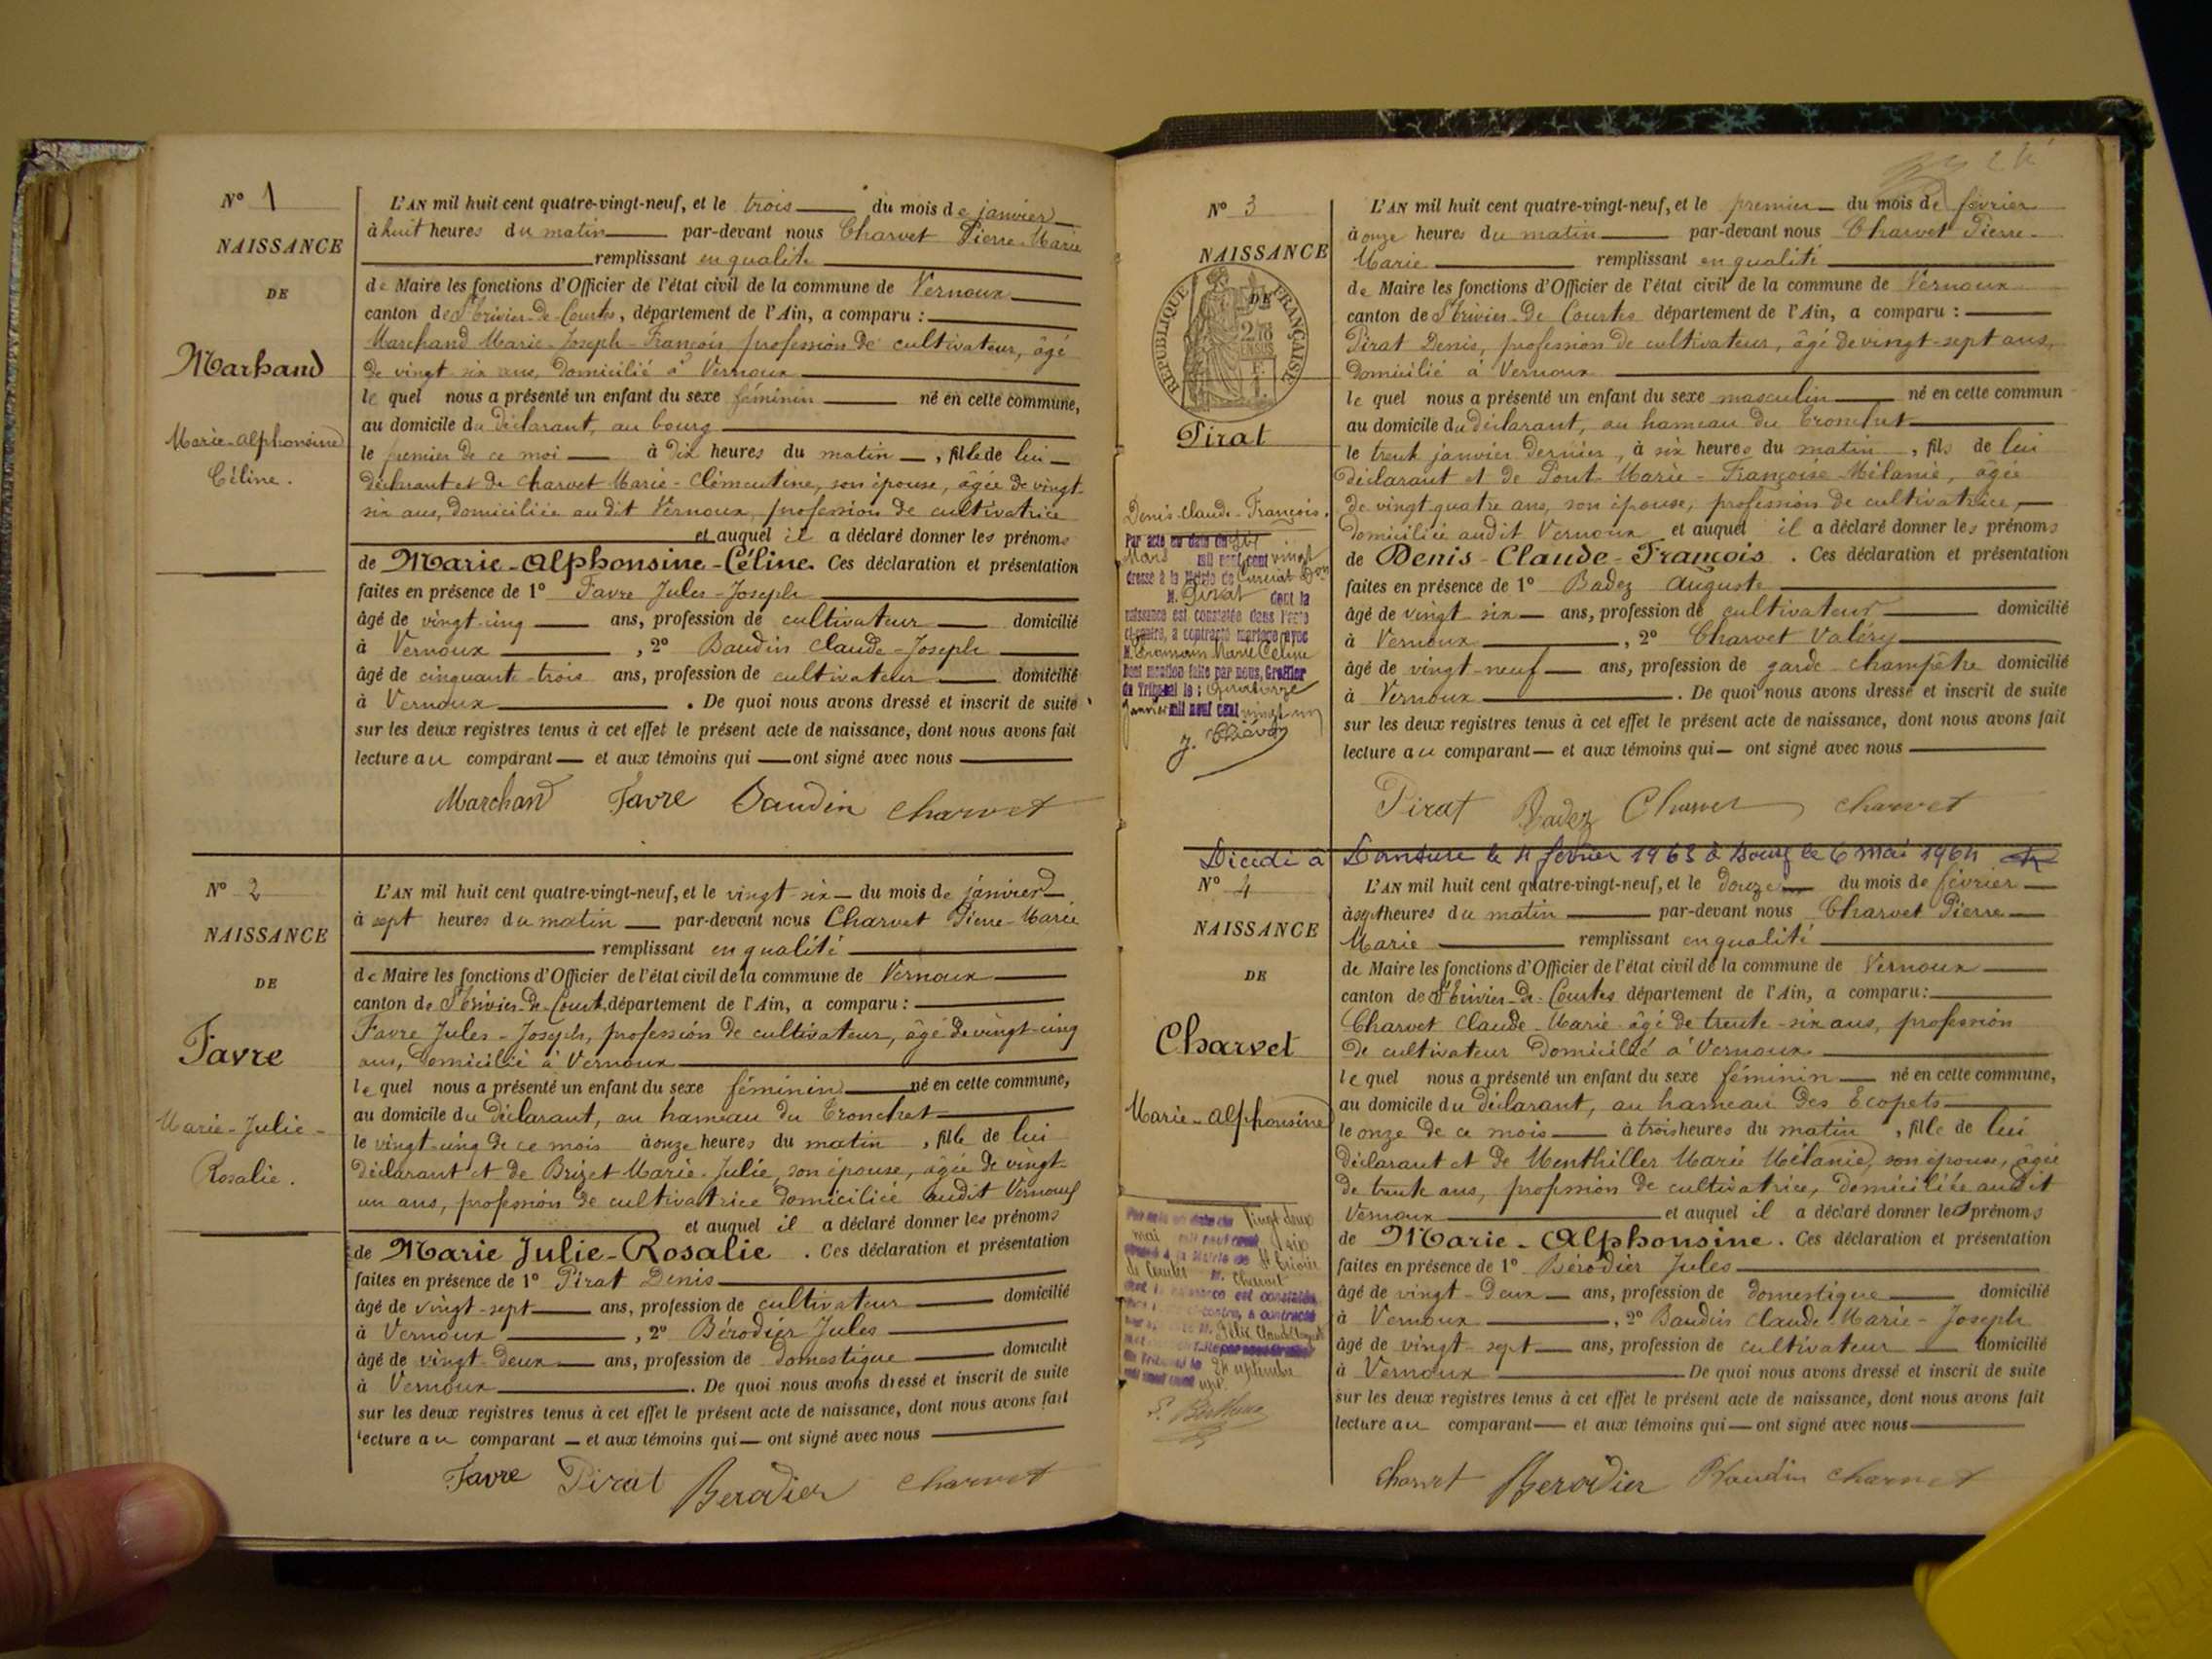 N° 1
NAISSANCE
DE
Marhand
Marie-Alphonsine
Céline.
L'AN mil huit cent quatre-vingt-neuf, et le trois du mois de janvier
à huit heures du matin par-devant nous Charvet Pierre-Marie
remplissant en qualité
de Maire les fonctions d'Officier de l'état civil de la commune de Vernoux
canton de St Trivier-de-Courtes, département de l'Ain, a comparu :
Marchand Marie-Joseph-François profession de cultivateur, âgé
de vingt six ans, domicilié à Vernoux
le quel nous a présenté un enfant du sexe féminin né en cette commune,
au domicile du déclarant, au bourg
le premier de ce moi à dix heures du matin, fille de lui
déclarant et de Charvet Marie-Clémentine, son épouse, âgée de vingt-
six ans, domiciliée audit Vernoux, profession de cultivatrice
et auquel il a déclaré donner les prénoms
de Marie-Alphonsine-Céline. Ces déclaration et présentation
faites en présence de 1° Favre Jules-Joseph
âgé de vingt-cinq ans, profession de cultivateur domicilié
à Vernoux, 2° Baudin Claude-Joseph
âgé de cinquante-trois ans, profession de cultivateur domicilié
à Vernoux. De quoi nous avons dressé et inscrit de suite
sur les deux registres tenus à cet effet le présent acte de naissance, dont nous avons fait
lecture au comparant et aux témoins qui ont signé avec nous
Marchand Favre Baudin Charvet
N° 2
NAISSANCE
DE
Favre
Marie-Julie-
Rosalie.
L'AN mil huit cent quatre-vingt-neuf, et le vingt-six du mois de janvier
à sept heures du matin par-devant nous Charvet Pierre-Marie
remplissant en qualité
de Maire les fonctions d'Officier de l'état civil de la commune de Vernoux
canton de St Trivier-de-Court, département de l'Ain, a comparu :
Favre Jules-Joseph, profession de cultivateur, âgé de vingt-cinq
ans, domicilié à Vernoux
le quel nous a présenté un enfant du sexe féminin né en cette commune,
au domicile du déclarant, au hameau du Tronchet
le vingt-cinq de ce mois à onze heures du matin, fille de lui
déclarant et de Brizet Marie-Julie, son épouse, âgée de vingt-
un ans, profession de cultivatrice domiciliée audit Vernoux
et auquel il a déclaré donner les prénoms
de Marie Julie-Rosalie. Ces déclaration et présentation
faites en présence de 1° Pirat Denis
âgé de vingt-sept ans, profession de cultivateur domicilié
à Vernoux, 2° Bérodier Jules
âgé de vingt-deux ans, profession de domestique domicilié
à Vernoux. De quoi nous avons dressé et inscrit de suite
sur les deux registres tenus à cet effet le présent acte de naissance, dont nous avons fait
lecture au comparant et aux témoins qui ont signé avec nous
Favre Pirat Berodier Charvet
N° 3
NAISSANCE
DE
RÉPUBLIQUE FRANÇAISE
Pirat
Denis-Claude-François.
Par acte en date du
Mars mil neuf cent vingt
dressé à la Mairie de Curciat Don
M. Pirat dont la
naissance est constatée dans l'acte
ci-contre, a contracté mariage avec
M. Marie Céline
Dont mention faite par nous, Greffier
du Tribunal le : Quatorze
Janvier mil neuf cent vingt un
L'AN mil huit cent quatre-vingt-neuf, et le premier du mois de février
à onze heures du matin par-devant nous Charvet Pierre-
Marie remplissant en qualité
de Maire les fonctions d'Officier de l'état civil de la commune de Vernoux
canton de St Trivier-de-Courtes département de l'Ain, a comparu :
Pirat Denis, profession de cultivateur, âgé de vingt-sept ans,
domicilié à Vernoux
le quel nous a présenté un enfant du sexe masculin né en cette commun
au domicile du déclarant, au hameau du Tronchet
le trent janvier dernier, à six heures du matin, fils de lui
déclarant et de Pont Marie-Françoise-Mélanie, âgée
de vingt-quatre ans, son épouse, profession de cultivatrice,
domiciliée audit Vernoux et auquel il a déclaré donner les prénoms
de Denis-Claude-François. Ces déclaration et présentation
faites en présence de 1° Badez Auguste
âgé de vingt six ans, profession de cultivateur domicilié
à Vernoux, 2° Charvet Valéry
âgé de vingt-neuf ans, profession de garde-champêtre domicilié
à Vernoux. De quoi nous avons dressé et inscrit de suite
sur les deux registres tenus à cet effet le présent acte de naissance, dont nous avons fait
lecture au comparant et aux témoins qui ont signé avec nous
Pirat Badez Charvet Charvet
Décédé à Domsure le 4 février 1963 à Bourg le 6 mai 1964
N° 4
NAISSANCE
DE
Charvet
Marie-Alphonsine
Par acte en date du Vingt deux
mai mil neuf cent dix
dressé à la Mairie de St Trivier
de Courtes M. Charvet
dont la naissance est constatée
24 septembre
L'AN mil huit cent quatre-vingt-neuf, et le douze du mois de février
à sept heures du matin par-devant nous Charvet Pierre
Marie remplissant en qualité
de Maire les fonctions d'Officier de l'état civil de la commune de Vernoux
canton de St Trivier-de-Courtes département de l'Ain, a comparu :
Charvet Claude-Marie âgé de trente-six ans, profession
de cultivateur domicilié à Vernoux
le quel nous a présenté un enfant du sexe féminin né en cette commune,
au domicile du déclarant, au hameau des Ecopets
le onze de ce mois à trois heures du matin, fille de lui
déclarant et de Menthiller Marie Mélanie, son épouse, âgée
de trente ans, profession de cultivatrice, domiciliée audit
Vernoux et auquel il a déclaré donner les prénoms
de Marie-Alphonsine. Ces déclaration et présentation
faites en présence de 1° Bérodier Jules
âgé de vingt-deux ans, profession de domestique domicilié
à Vernoux, 2° Baudin Claude Marie-Joseph
âgé de vingt-sept ans, profession de cultivateur domicilié
à Vernoux De quoi nous avons dressé et inscrit de suite
sur les deux registres tenus à cet effet le présent acte de naissance, dont nous avons fait
lecture au comparant et aux témoins qui ont signé avec nous
Charvet Berodier Baudin Charvet